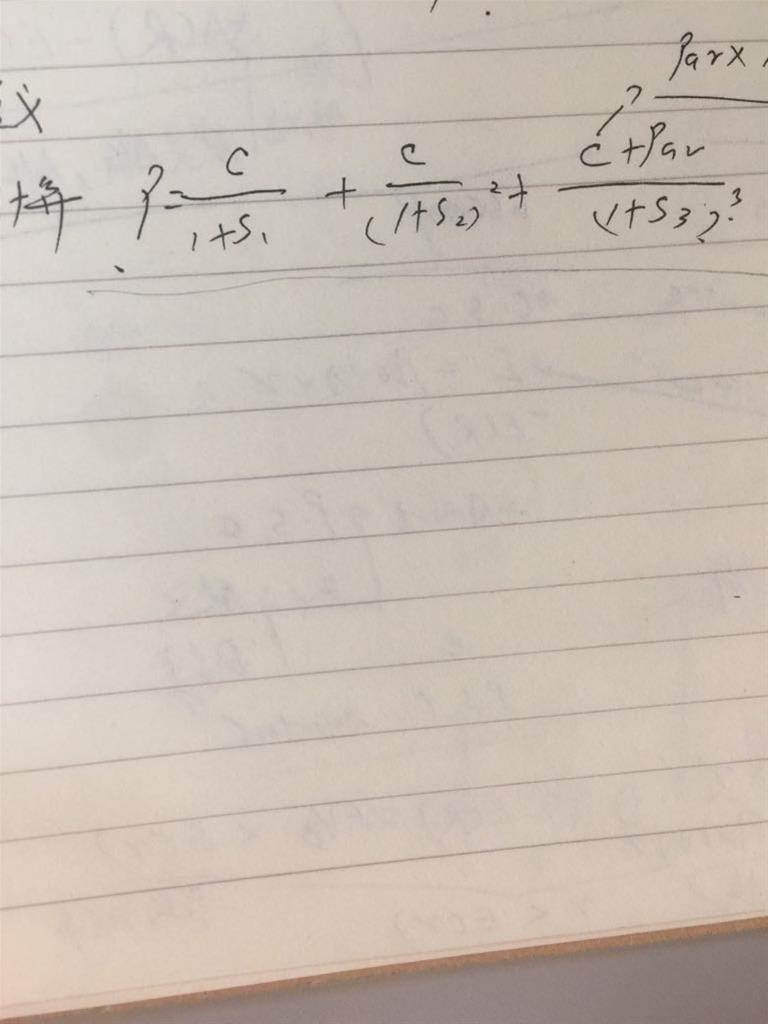 Par x
义
P = C/(1+S₁) + C/(1+S₂)² + (C+Par)/(1+S₃)³